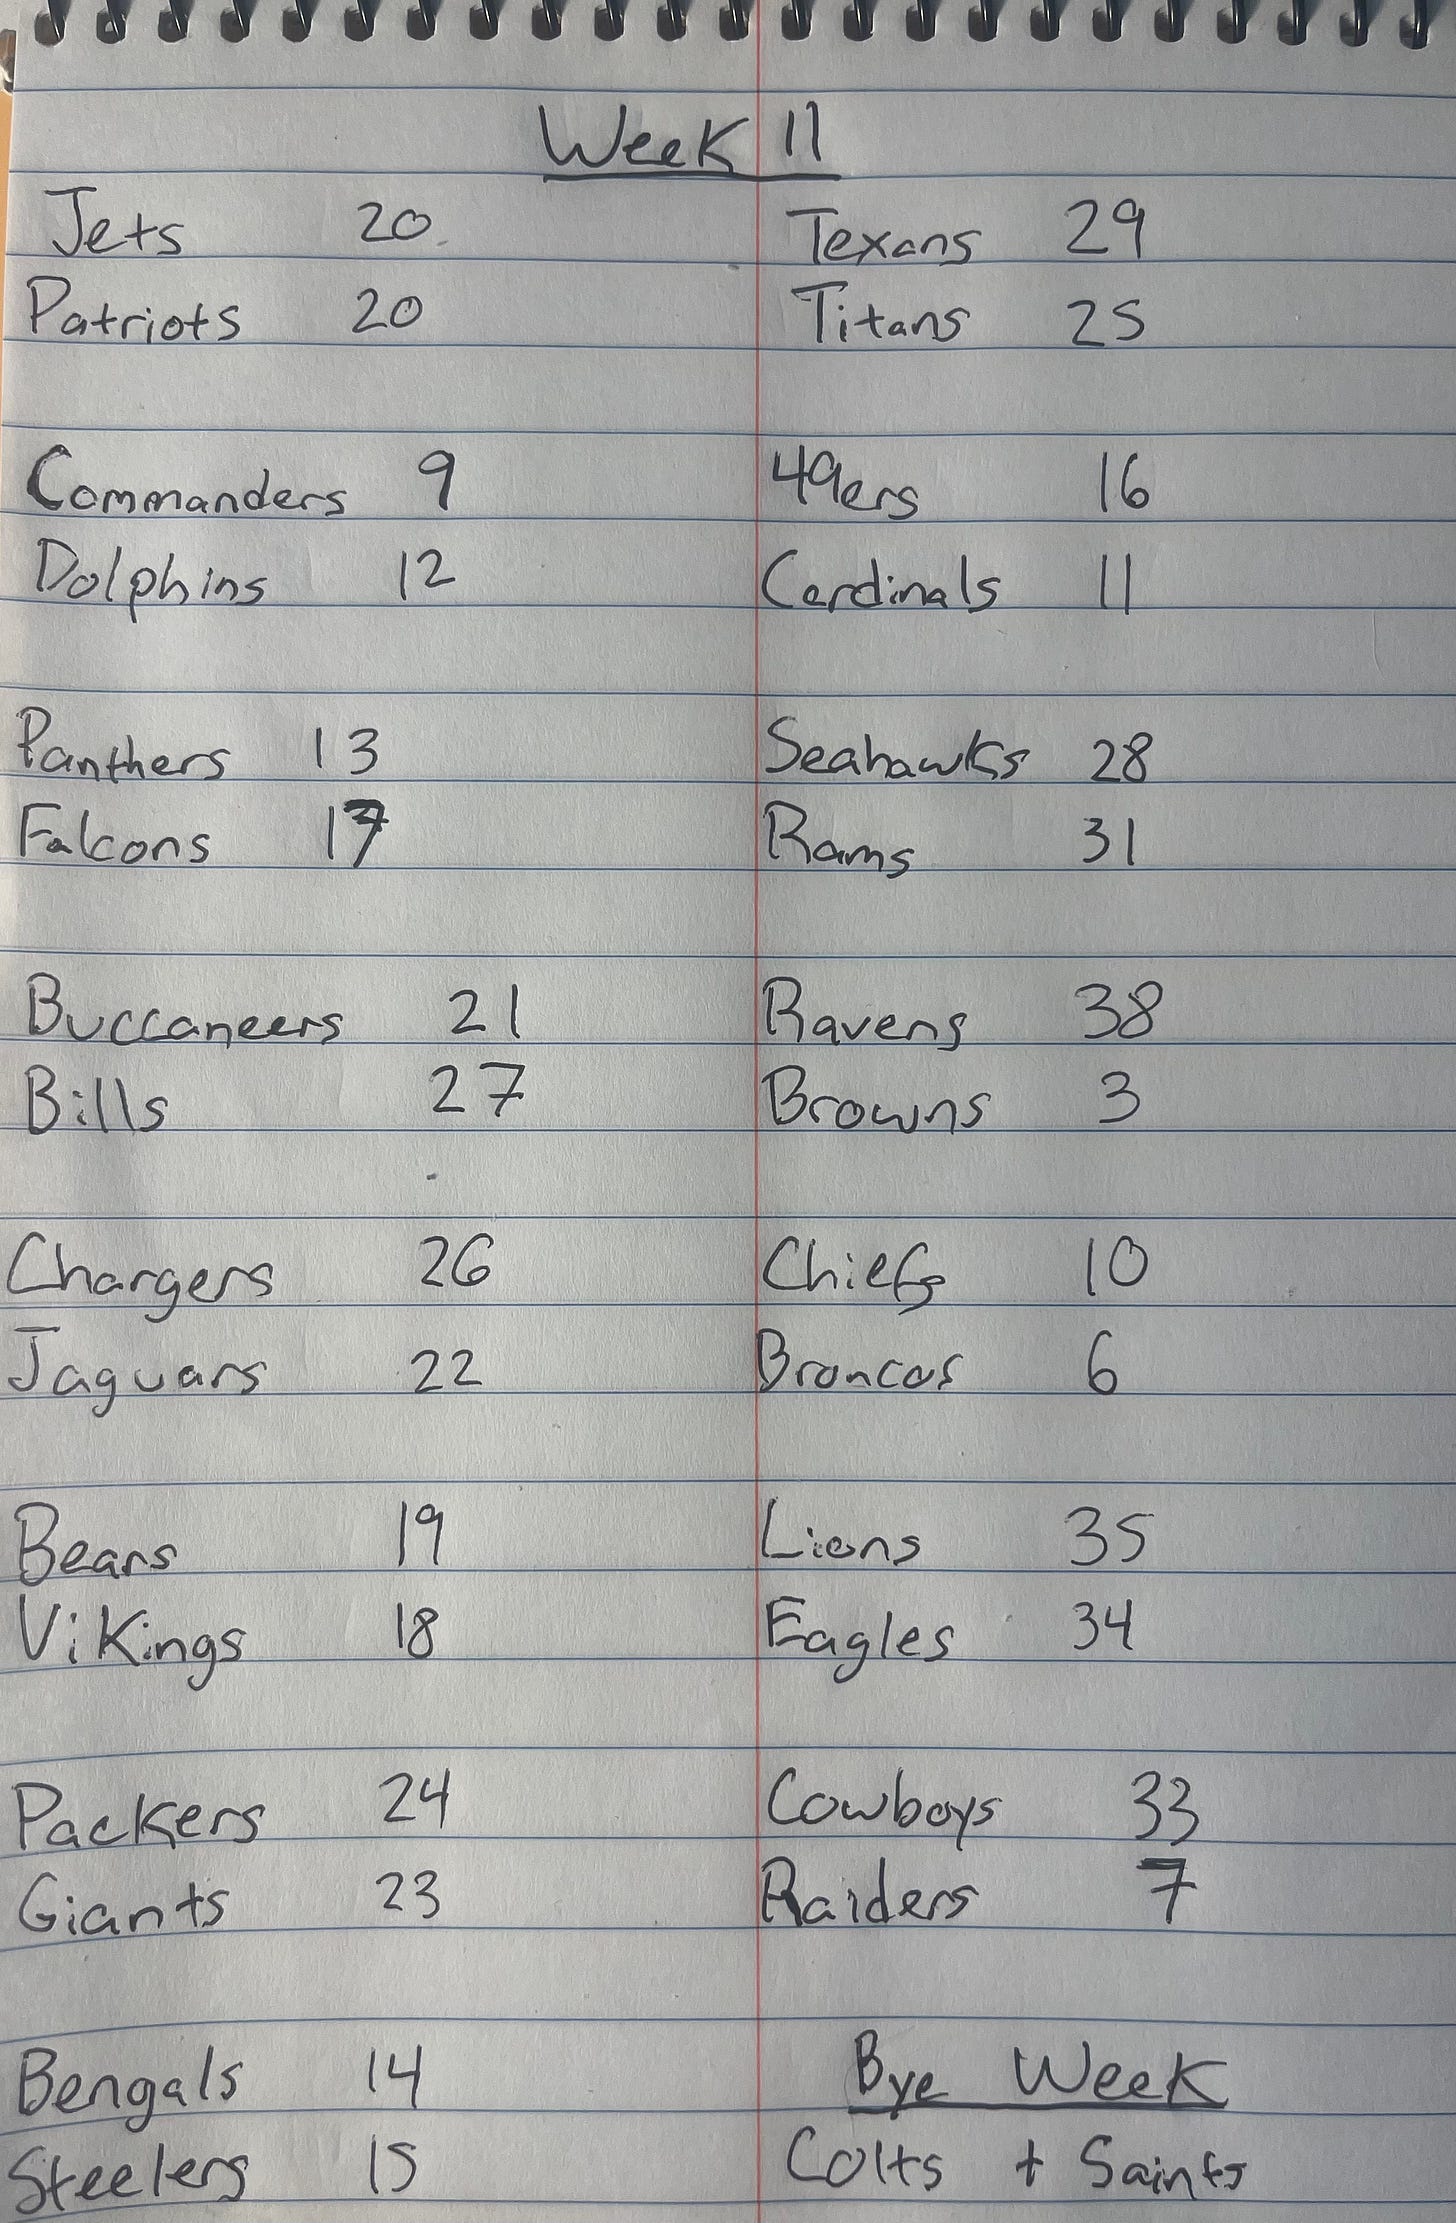 Week 11
Jets 20
Patriots 20
Commanders 9
Dolphins 12
Panthers 13
Falcons 17
Buccaneers 21
Bills 27
Chargers 26
Jaguars 22
Bears 19
Vikings 18
Packers 24
Giants 23
Bengals 14
Steelers 15
Texans 29
Titans 25
49ers 16
Cardinals 11
Seahawks 28
Rams 31
Ravens 38
Browns 3
Chiefs 10
Broncos 6
Lions 35
Eagles 34
Cowboys 33
Raiders 7
Bye Week
Colts + Saints